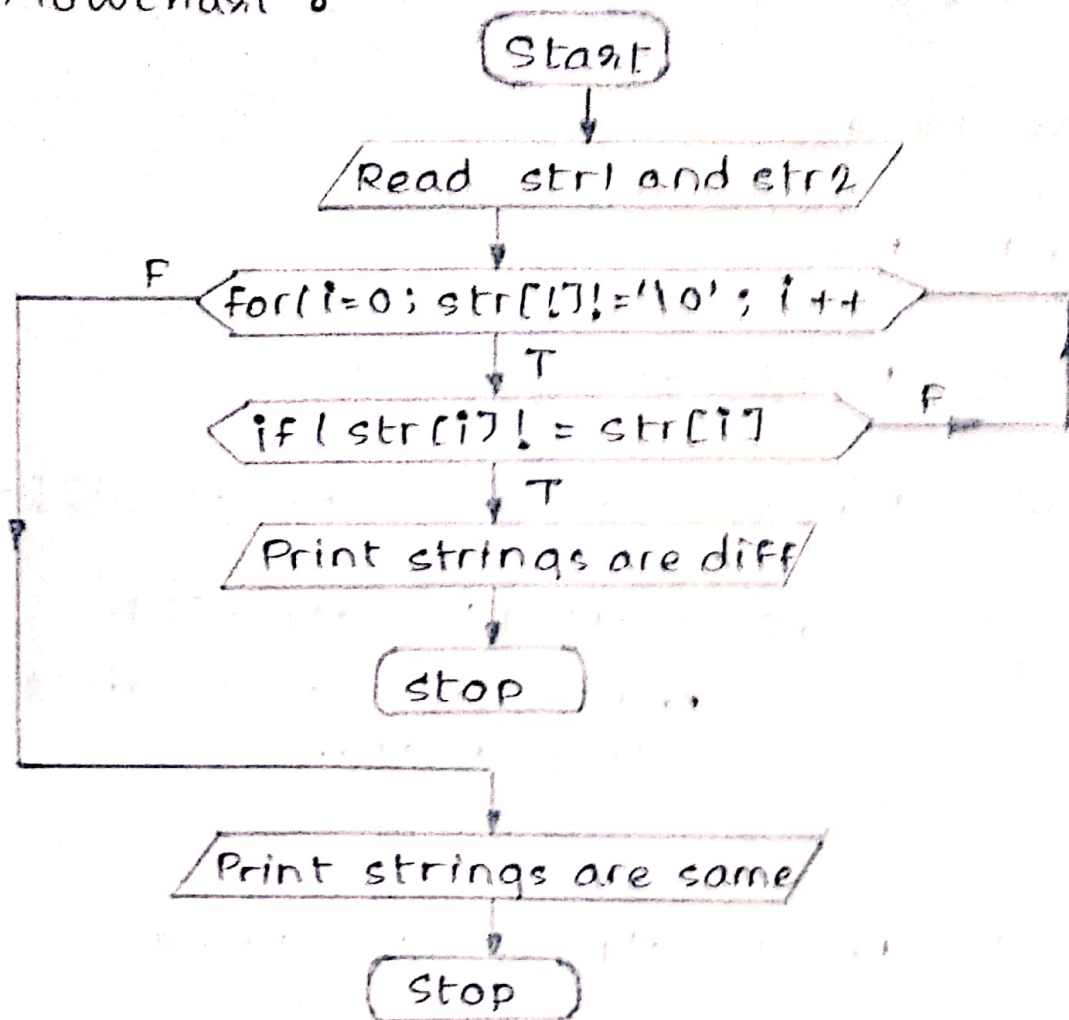 Flowchart :
Start
Read str1 and str2
F
for(i=0; str[i]!='\0'; i++
T
if( str[i]!= str[i]
F
T
Print strings are diff
stop
Print strings are same
Stop